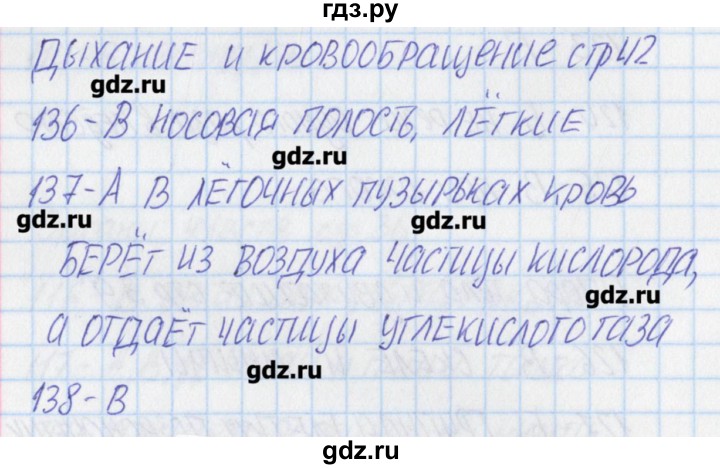 гдз.ру
Дыхание и кровообращение стр 42
gdz.ru
136-В носовая полость, лёгкие
gdz.ru
137-А В лёгочных пузырьках кровь
gdz.ru gdz.ru
берёт из воздуха частицы кислорода,
gdz.ru
а отдаёт частицы углекислого газа
gdz.ru
138-В
gdz.ru